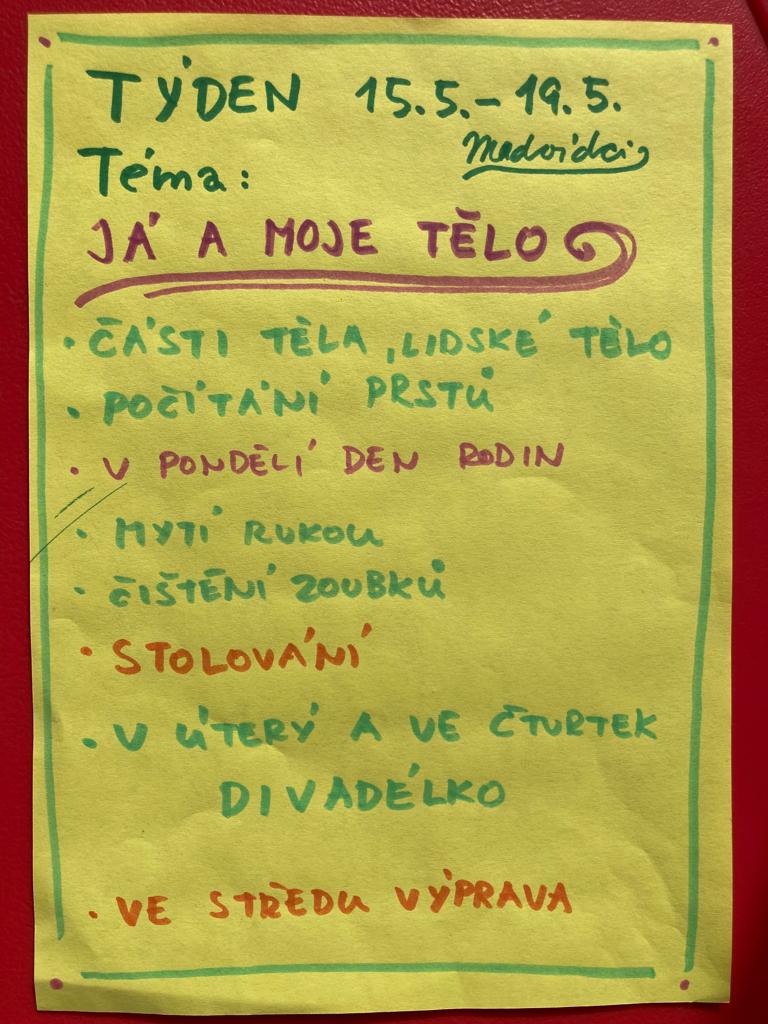 TÝDEN 15.5.-19.5.
Medvídci
Téma:
JÁ A MOJE TĚLO
• ČÁSTI TĚLA, LIDSKÉ TĚLO
• POČÍTÁNÍ PRSTŮ
• V PONDĚLÍ DEN RODIN
• MYTÍ RUKOU
• ČIŠTĚNÍ ZOUBKŮ
• STOLOVÁNÍ
• V ÚTERÝ A VE ČTVRTEK
DIVADÉLKO
• VE STŘEDU VÝPRAVA